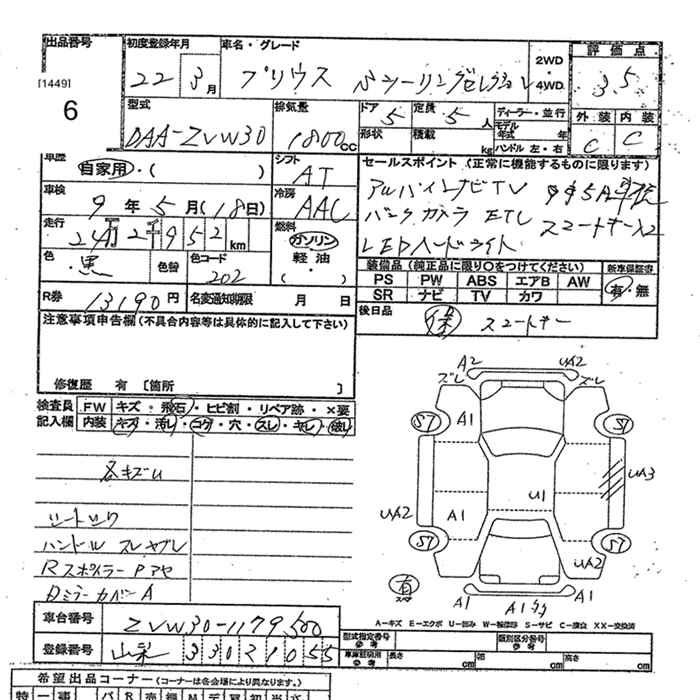 出品番号 初度登録年月 車名・グレード 2WD・4WD 評価点
[1449] 22年3月 プリウス Sツーリングセレクション 3.5
6
型式 排気量 ドア 定員 ディーラー・並行 外装 内装
DAA-ZVW30 1800cc 5 5人 モデル年式 年 C C
形状 積載 kg ハンドル 左・右
車歴 自家用・( ) シフト AT セールスポイント (正常に機能するものに限ります)
車検 9年5月(18日) 冷房 AAC アルパインナビTV
バックカメラ ETC スマートキーX2
走行 24万2千952km 燃料 ガソリン・軽油・( ) LEDヘッドライト
色 黒 色替 色コード 202
装備品 (純正品に限り○をつけてください) 新車保証書
PS PW ABS エアB AW 有・無
SR ナビ TV カワ
R券 13190円 名変通知期限 月 日
後日品 保 スマートキー
注意事項申告欄 (不具合内容等は具体的に記入して下さい)
修復歴 有 [箇所 ]
検査員記入欄 FW キズ・飛石・ヒビ割・リペア跡・×要
内装 キズ・汚レ・コゲ・穴・スレ・キレ・破レ
各キズU
シートシワ
ハンドル スレヤブレ
Rスポイラー Pアセ
Dミラーカバー A
A2 UA2
ズレ ズレ
57 A1 57
UA3
U1
UA2 A1
57 57
UA2
有 スペア
A1 A1 A1
A-キズ E-エクボ U-凹み W-板修跡 S-サビ C-腐食 XX-交換済
車台番号 ZVW30-1179500
登録番号 山梨 330 ル 1055
型式指定番号 参考 類別区分番号 参考
車庫証明用 参考 長さ cm 幅 cm 高さ cm
希望出品コーナー (コーナーは各会場により異なります)